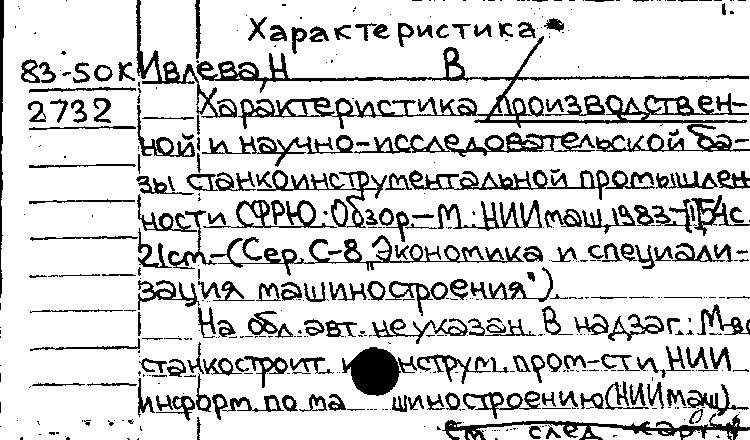 Характеристика
83-50К Ивлева, Н В
2732 Характеристика производствен-
ной и научно-исследовательской ба-
зы станкоинструментальной промышлен
ности СФРЮ: Обзор.-М.: НИИмаш, 1983.-54с
21ст.-(Сер. С-8 „Экономика и специали-
зация машиностроения").
На обл. авт. не указан. В надзаг.: М-во
станкостроит. и инструм. пром-сти, НИИ
информ. по ма шиностроению (НИИмаш).
см. след. карт.